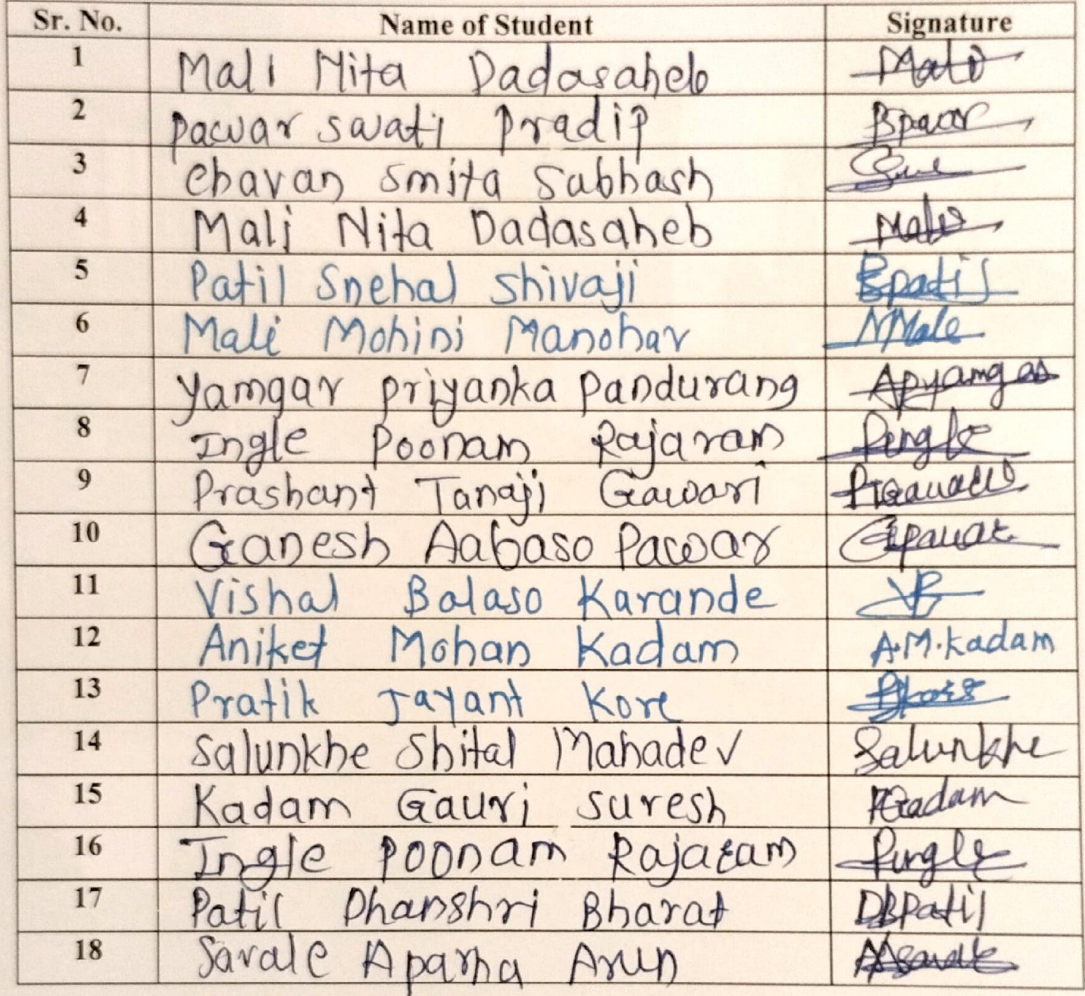 Sr. No. Name of Student Signature
1 Mali Nita Dadasaheb Mali
2 Pawar swati Pradip Bpawar
3 Chavan Smita Subhash
4 Mali Nita Dadasaheb Mali
5 Patil Snehal Shivaji Spatil
6 Mali Mohini Manohar MMale
7 Yamgar Priyanka Pandurang Apyamgar
8 Ingle Poonam Rajaram Pingle
9 Prashant Tanaji Gawari
10 Ganesh Aabaso Pawar Gpawar
11 Vishal Balaso Karande VB
12 Aniket Mohan Kadam A.M.Kadam
13 Pratik Jayant Kore
14 Salunkhe Shital Mahadev Salunkhe
15 Kadam Gauri Suresh
16 Ingle Poonam Rajaram Pingle
17 Patil Dhanshri Bharat DBPatil
18 Savale Aparna Arun